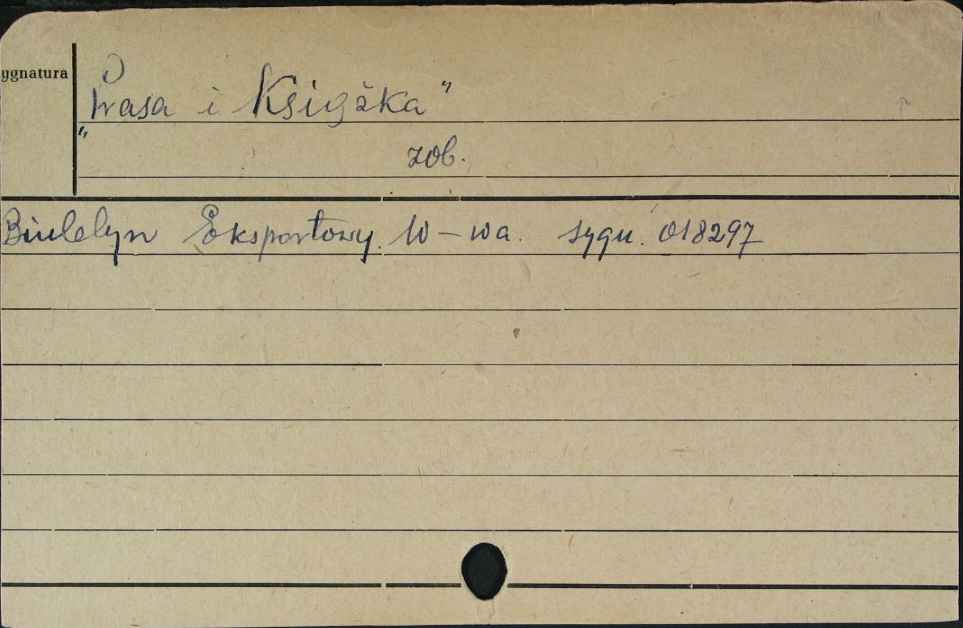 ygnatura
„Prasa i Książka"
zob.
Biuletyn Eksportowy. W-wa. sygn. 018297